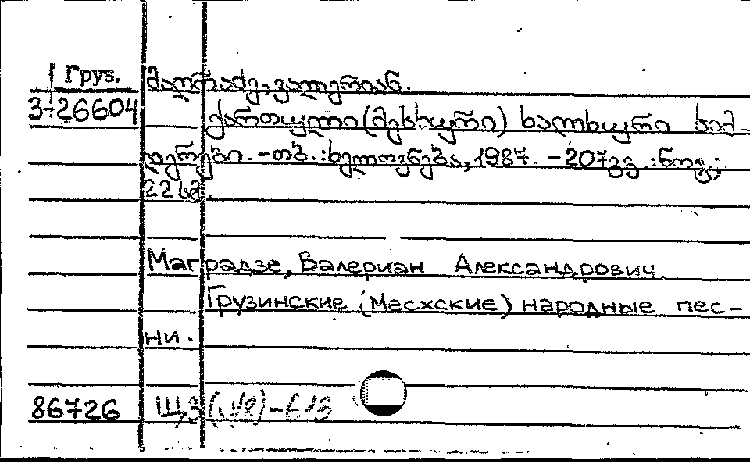 Груз. მაღრაძე, ვალერიან.
3-26604 ქართული (მესხური) ხალხური სიმ-
ღერები. - თბ.: ხელოვნება, 1987. - 207 გვ.: ნოტ.;
22 სმ.
Маградзе, Валериан Александрович
Грузинские (Месхские) народные пес-
ни.
86726 Щ